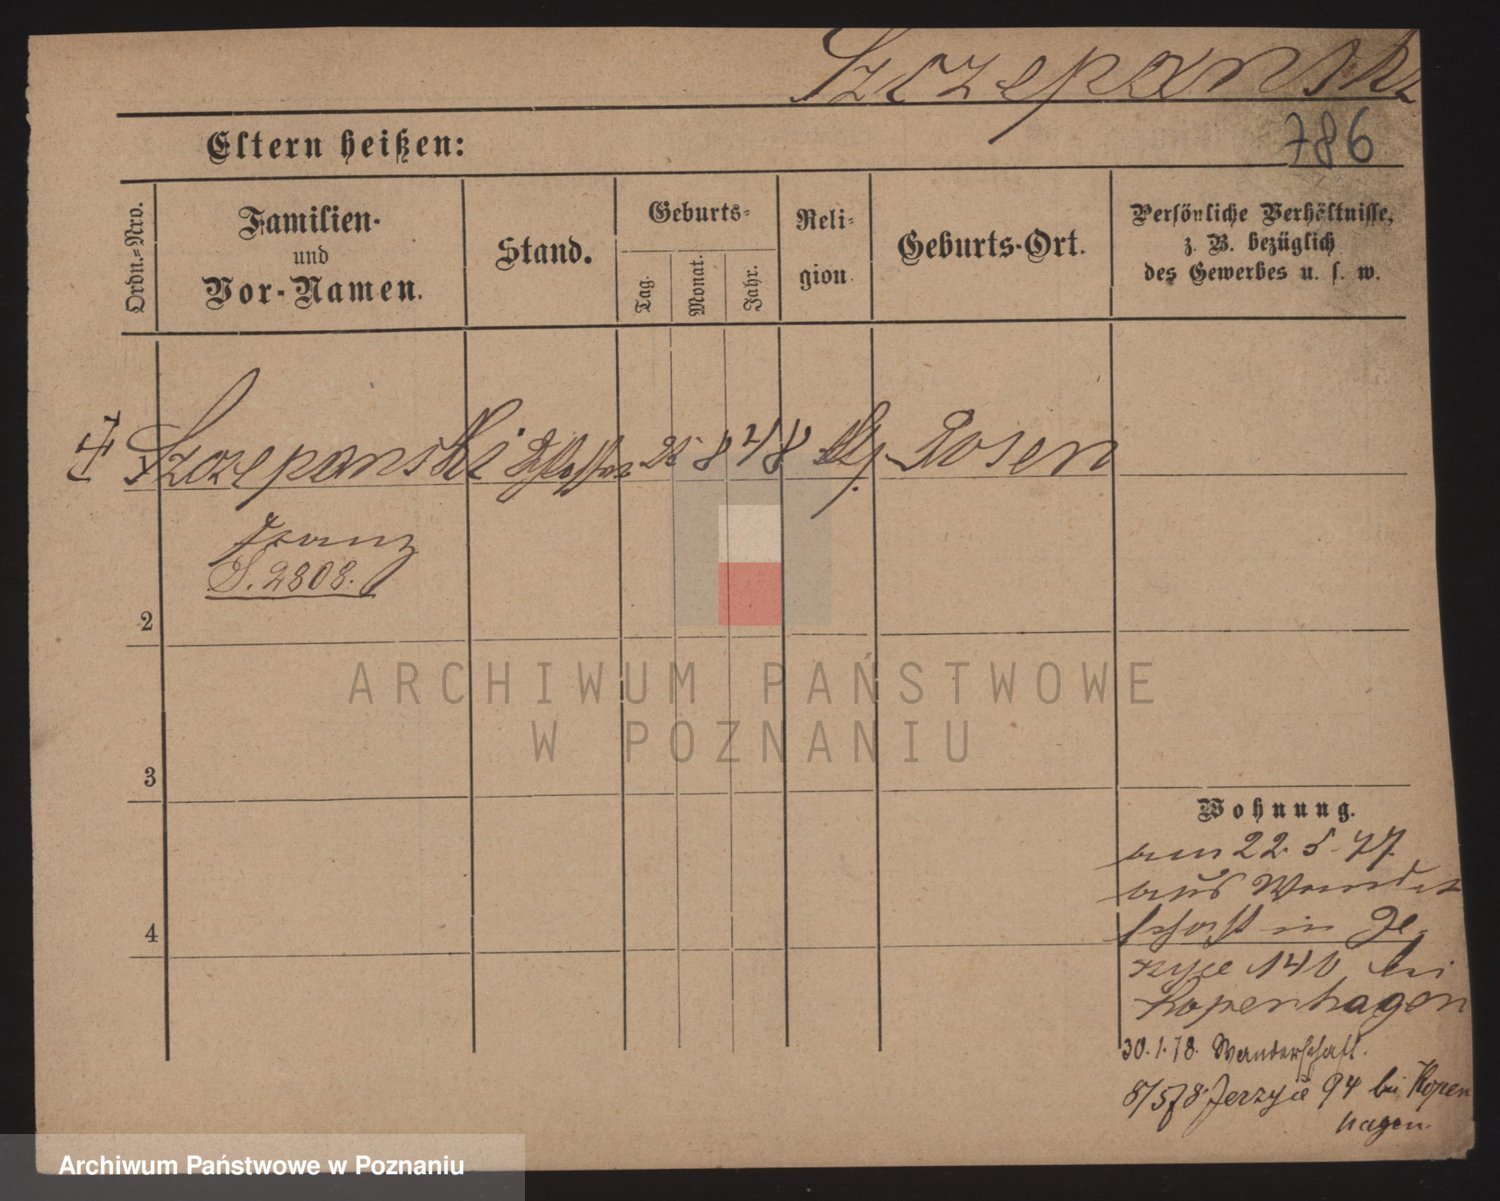 Szczepanski
786
Eltern heißen:
Ordn.-Nro.
Familien-
und
Vor-Namen.
Stand.
Geburts-
Tag.
Monat.
Jahr.
Reli-
gion.
Geburts-Ort.
Persönliche Verhältnisse,
z. B. bezüglich
des Gewerbes u. s. w.
Szczepanski 25 8 48 Posen
Franz
S. 2808.
2
3
4
Wohnung.
am 22. 5. 77
aus Wander
schaft in Je-
rzyce 140 bei
Kopenhagen
30. 1. 78. Wanderschaft.
8/5 78. Jerzyce 94 bei Kopen
hagen
ARCHIWUM PAŃSTWOWE
W POZNANIU
Archiwum Państwowe w Poznaniu